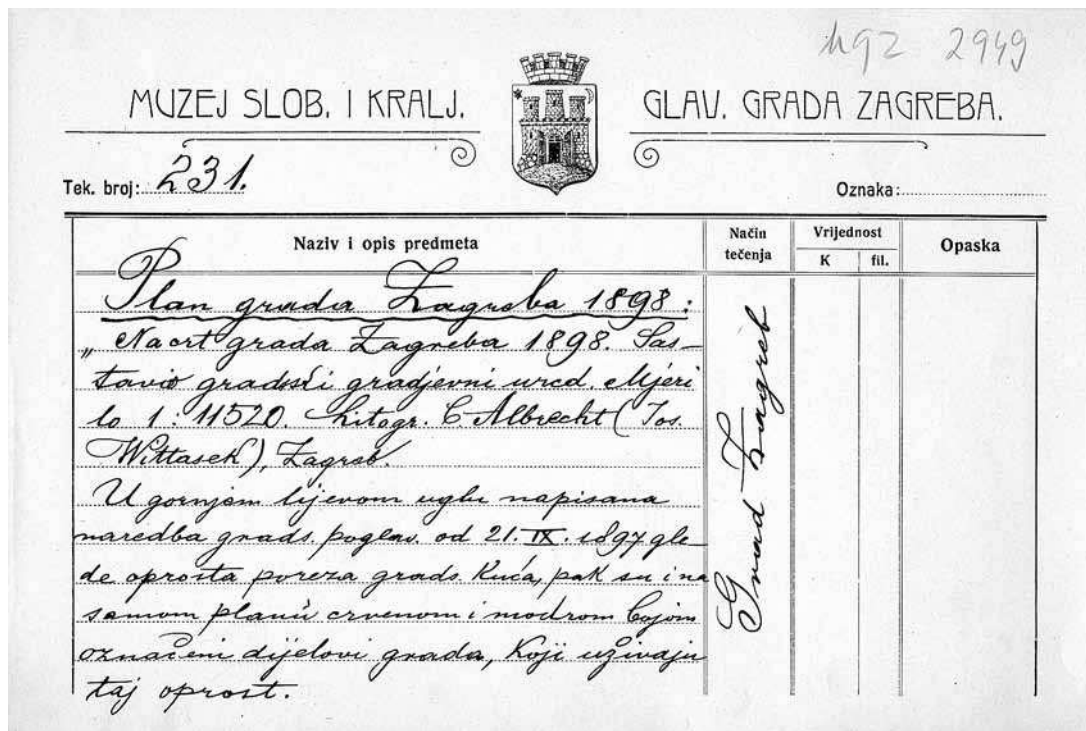 MGZ 2949
MUZEJ SLOB. I KRALJ. GLAV. GRADA ZAGREBA.
Tek. broj: 231. Oznaka:
Naziv i opis predmeta
Način tečenja
Vrijednost
K fil.
Opaska
Plan grada Zagreba 1898:
„Nacrt grada Zagreba 1898. Sas-
tavio gradski gradjevni ured. Mjeri
lo 1:11520. Litogr. C. Albrecht (Jos.
Wittasek), Zagreb.
U gornjem lijevom uglu napisana
naredba grads. poglav. od 21. IX. 1897. gle-
de oprosta poreza grads. kuća, pak su i na
samom planu crvenom i modrom bojom
označeni dijelovi grada, koji uživaju
taj oprost.
Grad Zagreb